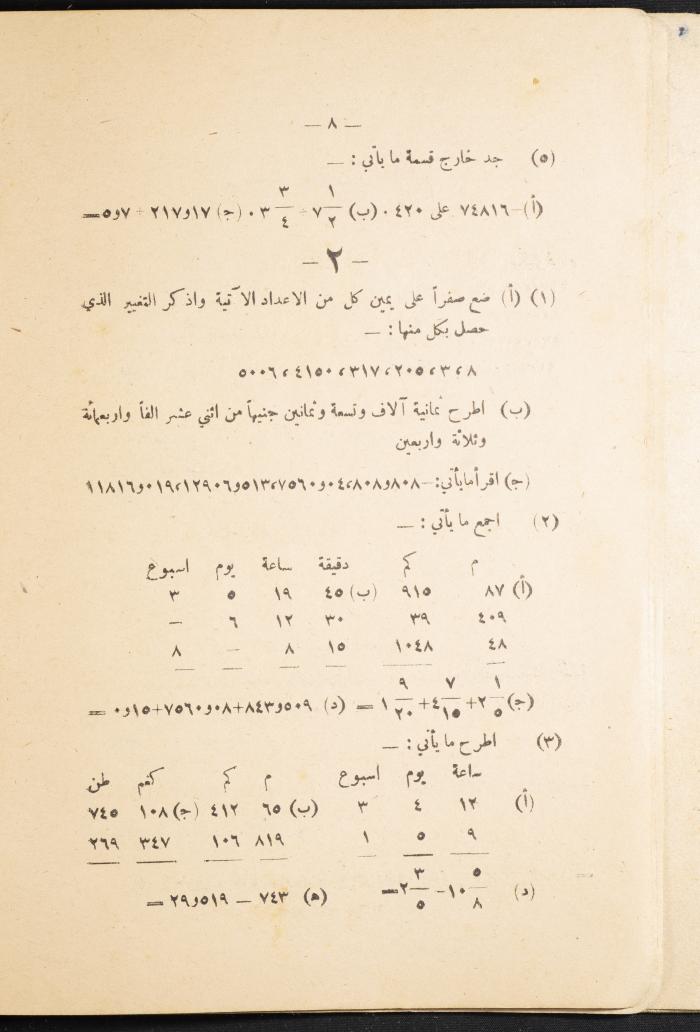 — ٨ —
(٥) جد خارج قسمة ما يأتي : —
(أ)—٧٤٨١٦ على ٤٢٠ . (ب) ٧ ١/٢ ÷ ٣ ٣/٤ . (ج) ١٧و٢١٧ ÷ ٧و٥=
— ٢ —
(١) (أ) ضع صفراً على يمين كل من الاعداد الآتية واذكر التغيير الذي
حصل بكل منها : —
٨ ، ٣ ، ٢٠٥ ، ٣١٧ ، ٤١٥٠ ، ٥٠٠٦
(ب) اطرح ثمانية آلاف وتسعة وثمانين جنيهاً من اثني عشر الفاً واربعمائة
وثلاثة واربعين
(ج) اقرأ ما يأتي : — ٨٠٨و٨٠٨،٠٤و٧٥٦٠،٥١٣و١٢٩٠٦،٠١٩و١١٨١٦
(٢) اجمع ما يأتي : —
م كم دقيقة ساعة يوم اسبوع
(أ) ٨٧ ٩١٥ (ب) ٤٥ ١٩ ٥ ٣
٤٠٩ ٣٩ ٣٠ ١٢ ٦ —
٤٨ ١٠٤٨ ١٥ ٨ — ٨
(ج) ٢ ١/٥ + ٤ ٧/١٥ + ١ ٩/٢٠ = (د) ٥٠٩و٨٤٣+٠٨و٧٥٦٠+١٥و٠ =
(٣) اطرح ما يأتي : —
ساعة يوم اسبوع م كم كغم طن
(أ) ١٢ ٤ ٣ (ب) ٦٥ ٤١٢ (ج) ١٠٨ ٧٤٥
٩ ٥ ١ ٨١٩ ١٠٦ ٣٤٧ ٢٦٩
(د) ١٠ ٥/٨ - ٢ ٣/٥ = (ه) ٧٤٣ — ٥١٩و٢٩ =